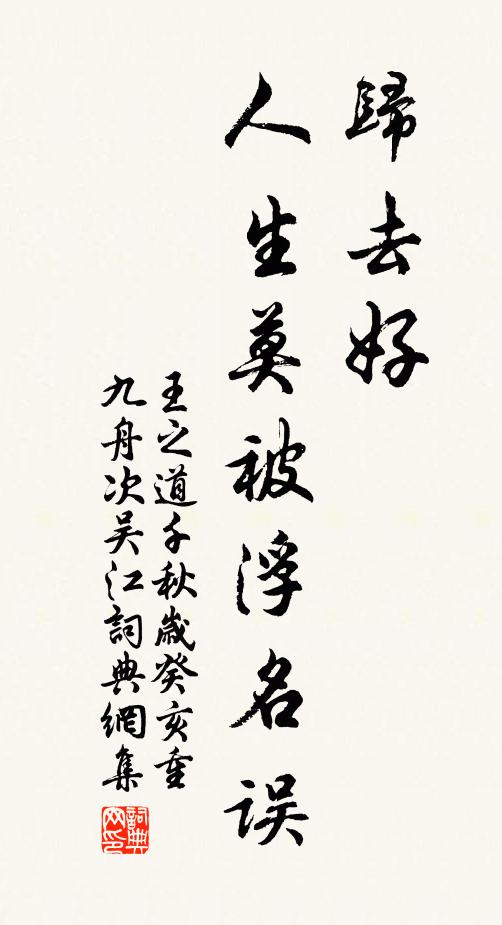 歸去好
人生莫被浮名误
王之道千秋歲癸亥重
九舟次吴江詞典網集
詞典
网印